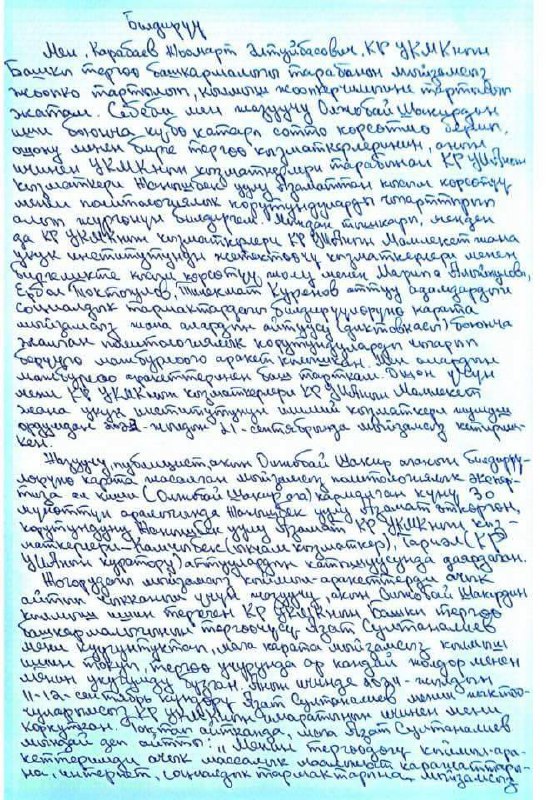 Билдирүү
Мен, Карабаев Жоомарт Элтуйбасович, КР УКМКнын
Башкы тергөө башкармалыгы тарабынан мыйзамсыз
жоопко тартылып, кылмыш жоопкерчилигине тартылып
жатам. Себеби мен жазуучу Олжобай Шакирдин
иши боюнча күбө катары сотто көрсөтмө берип,
ошону менен бирге тергөө кызматкерлеринин, анын
ичинен УКМКнын кызматкерлери тарабынан КР УИАнын
кызматкери Жанышбек уулу Азаматтан кысым көрсөтүү
менен политологиялык корутундуларды чыгарттырып
алып жүргөнүн билдиргем. Мындан тышкары, менден
да КР УКМКнын кызматкерлери КР УИАнын Мамлекет жана
укук институтунун жетектөөчү кызматкерлери менен
биргеликте кысым көрсөтүү жолу менен
Токтогулов, Тилекмат Куренов аттуу адамдардын
социалдык тармактардагы билдирүүлөрүнө карата
мыйзамсыз жана алардын айтуусу (диктовкасы) боюнча
жалган политологиялык корутундуларды чыгарып
берүүгө мажбурлоого аракет кылышкан. Мен алардын
мажбурлоо аракеттеринен баш тарткам. Ошон үчүн
мени КР УКМКнын кызматкерлери КР УИАнын Мамлекет
жана укук институтунун илимий кызматкери
ордунан жылдын 21-сентябрында мыйзамсыз кетириш-
кен.
Жазуучу, публицист, акын Олжобай Шакир аганын билдирүү-
лөрүнө карата жасалган мыйзамсыз политологиялык экспер-
тиза ал киши (Олжобай Шакир ага) кармалган күнү 30
мүнөттүн аралыгында Жанышбек уулу Азамат өткөргөн
корутундуну Жанышбек уулу Азамат КР УКМКнын кыз-
маткерлери – Камчыбек (оперкызматкер), (КР
УИАнын куратору) аттуулардын катышуусунда даярдаган.
Жогорудагы мыйзамсыз кылмыш-аракеттерди ачык
айтып чыкканым үчүн жазуучу, акын Олжобай Шакирдин
кылмыш ишин тергеген КР УКМКнын Башкы тергөө
башкармалыгынын тергөөчүсү Азат Султаналиев
мени куугунтуктап, мага карата мыйзамсыз кылмыш
ишин токуп, тергөө учурунда ар кандай жолдор менен
менин укугумду бузган. Анын ичинде жылдын
11-12-сентябрь күндөрү Азат Султаналиев мени
КР УИАнын имаратынын ичинен мени
коркуткан. Тактап айтканда, мага Азат Султаналиев
мындай деп айтты: „Менин тергөөдөгү кылмыш-ара-
кеттеримди ачык массалык маалымат каражаттары-
на, интернет, социалдык тармактарына мыйзамсыз